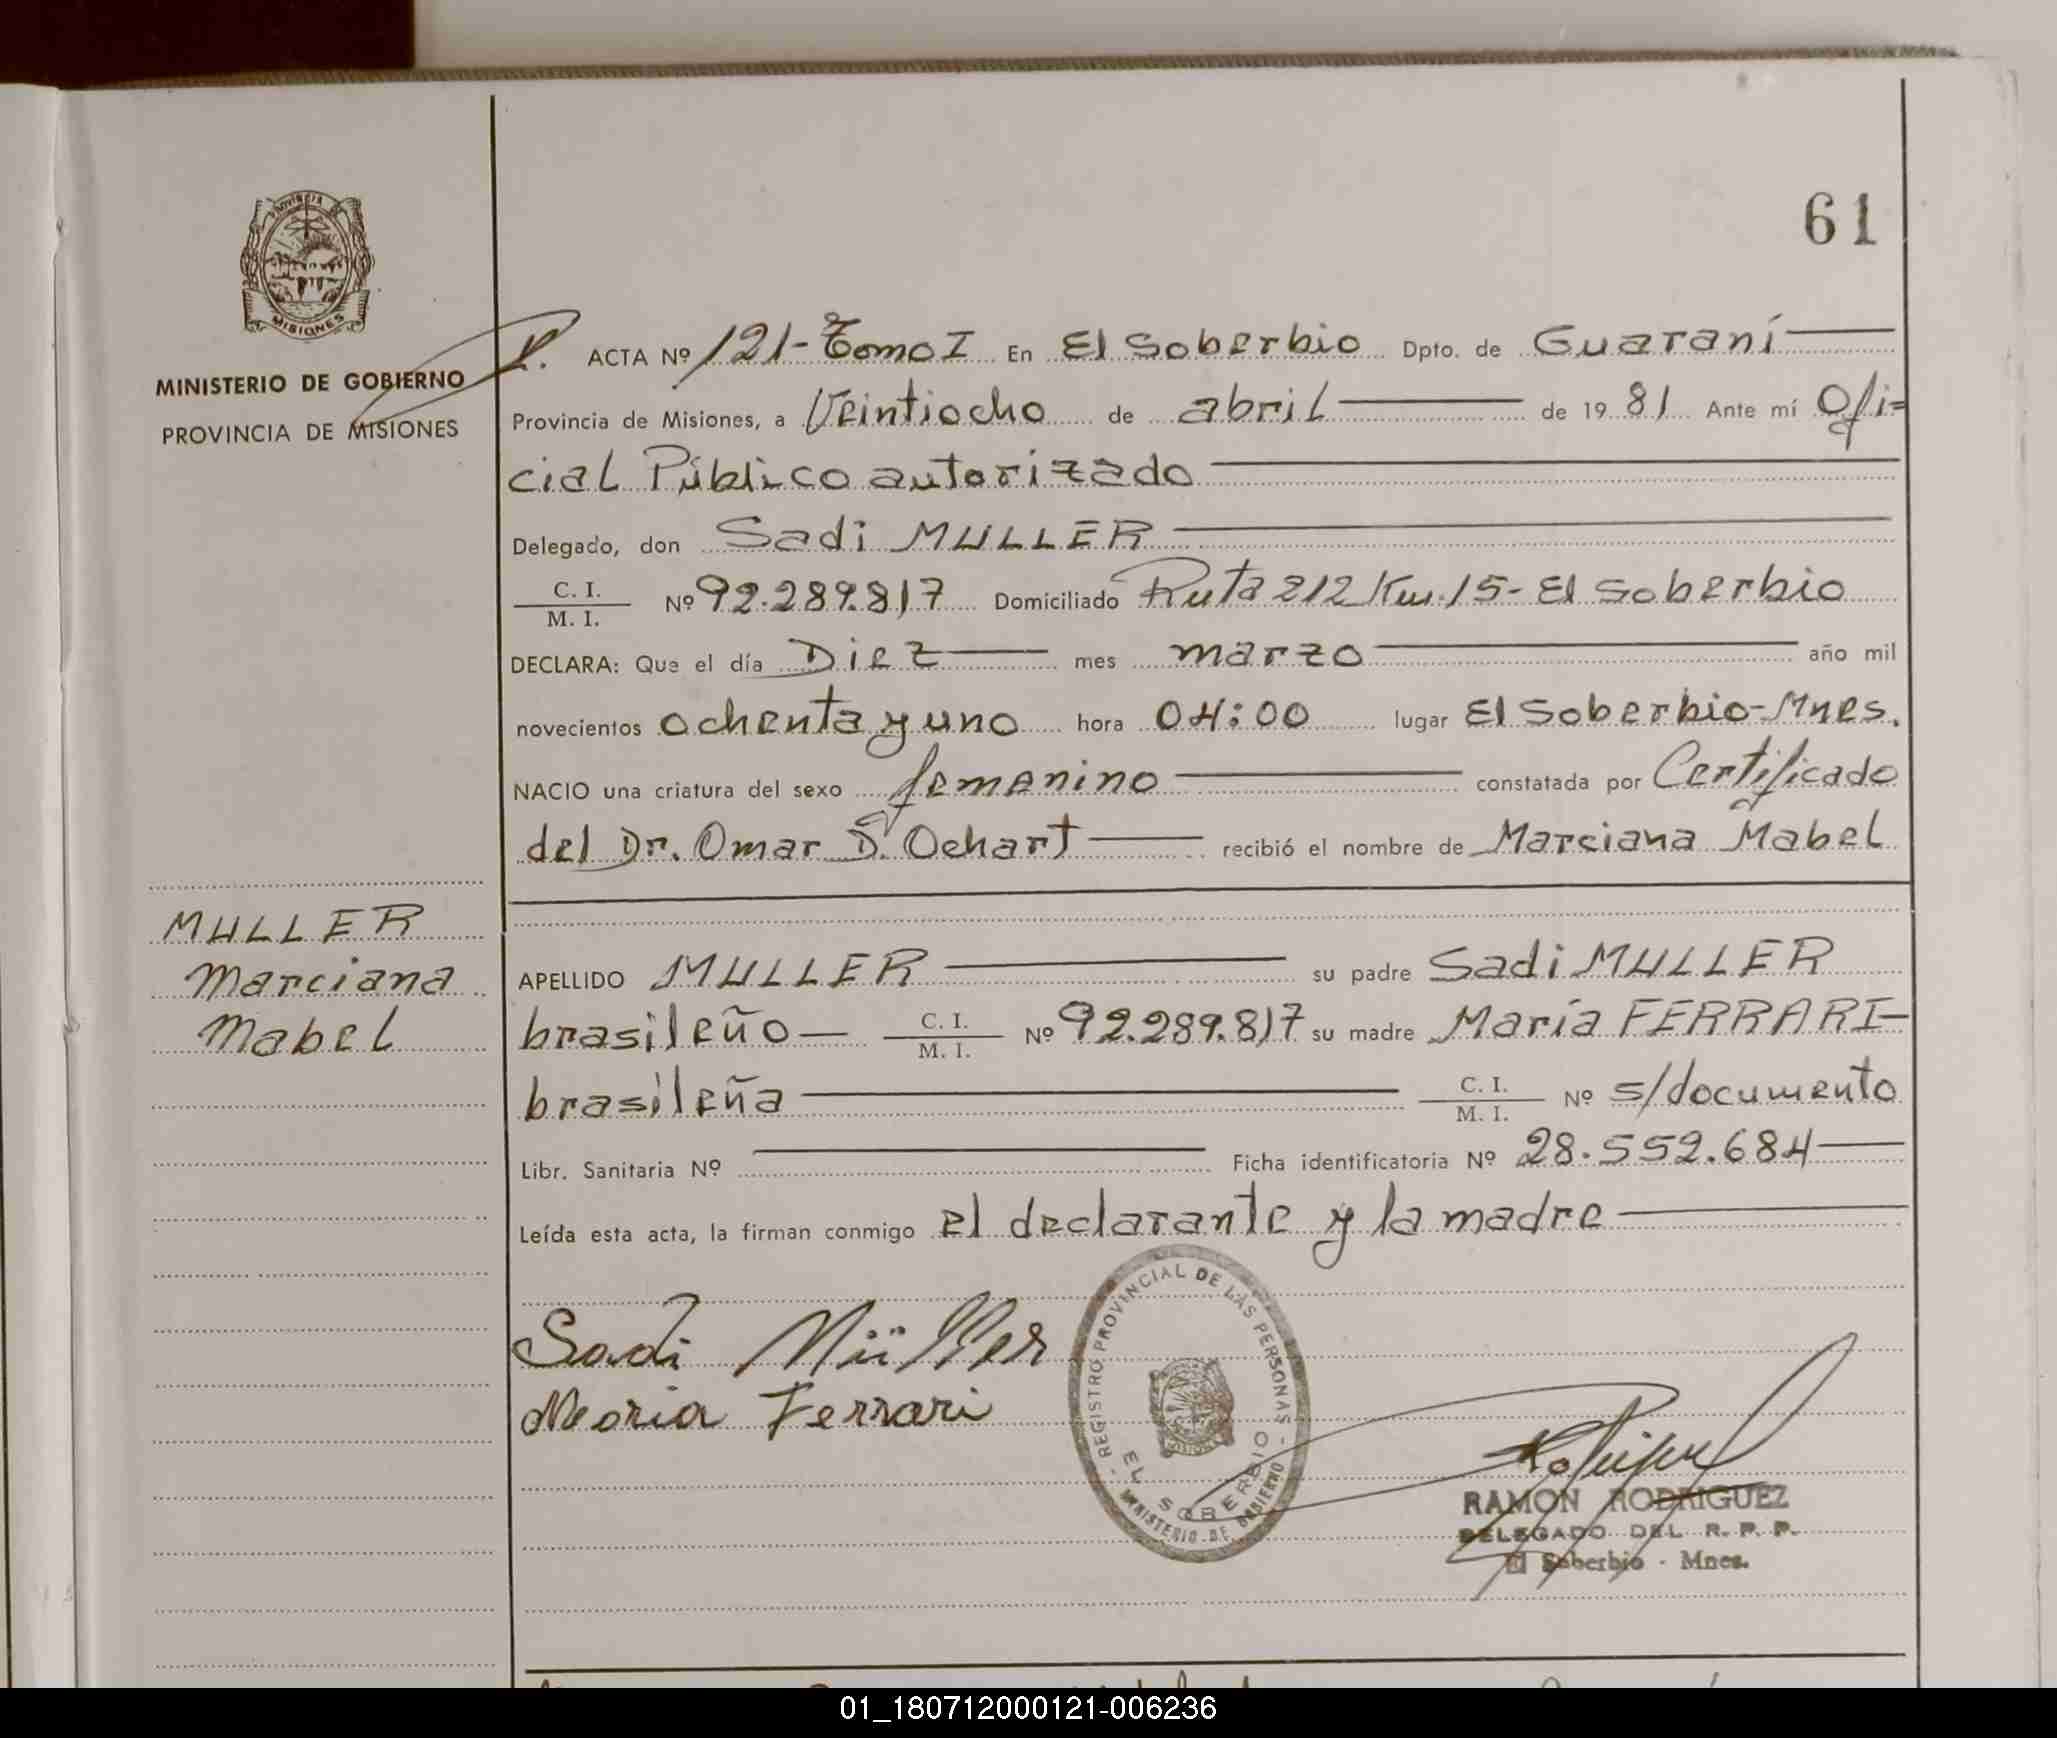 61
PROVINCIA DE
MISIONES
MINISTERIO DE GOBIERNO
PROVINCIA DE MISIONES
ACTA Nº 121-Tomo I En El Soberbio Dpto. de Guaraní
Provincia de Misiones, a Veintiocho de abril de 1981 Ante mí Ofi=
cial Público autorizado
Delegado, don Sadi MULLER
C. I.
M. I. Nº 92.289.817 Domiciliado Ruta 212 Km.15- El Soberbio
DECLARA: Que el día Diez mes marzo año mil
novecientos ochenta y uno hora 04:00 lugar El Soberbio-Mnes.
NACIO una criatura del sexo femenino constatada por Certificado
del Dr. Omar D. Ochart recibió el nombre de Marciana Mabel
MULLER
Marciana
Mabel
APELLIDO MULLER su padre Sadi MULLER
brasileño C. I.
M. I. Nº 92.289.817 su madre María FERRARI-
brasileña C. I.
M. I. Nº s/documento
Libr. Sanitaria Nº Ficha identificatoria Nº 28.552.684
Leída esta acta, la firman conmigo el declarante y la madre
Sadi Müller
Maria Ferrari
REGISTRO PROVINCIAL DE LAS PERSONAS
EL SOBERBIO
MINISTERIO DE GOBIERNO
RAMON RODRIGUEZ
DELEGADO DEL R. P. P.
El Soberbio - Mnes.
01_180712000121-006236